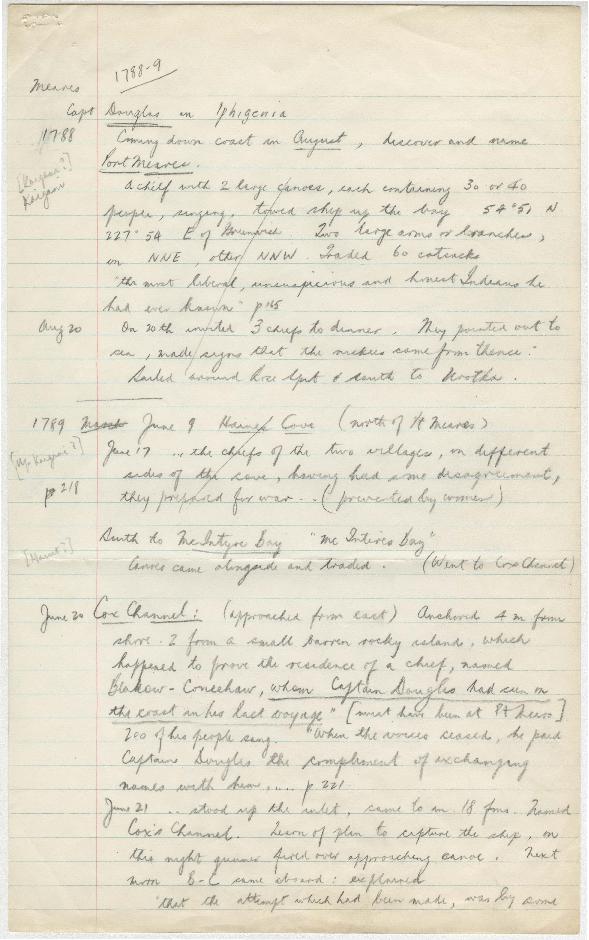 1788-9
Meares
Capt Douglas in Iphigenia
1788 Coming down coast in August, discover and name
Port Meares.
[Kaigani?]
Kaigani
A chief with 2 large canoes, each containing 30 or 40
people, singing, towed ship up the bay 54° 51 N
227° 54 E of Greenwich. Two large arms or branches,
on NNE, other NNW. Traded 60 cotsacks
"the most liberal, unsuspicious and honest Indians he
had ever known" p 165
Aug 20 On 20th invited 3 chiefs to dinner. They pointed out to
sea, made signs that the nickees came from thence."
Sailed around Rose Spit & south to Nootka.
1789 March June 9 Haines Cove (north of Pt Meares)
June 17 ... the chiefs of the two villages, on different
sides of the cove, having had some disagreement,
p 218 they prepared for war... (prevented by women)
South to McIntyre Bay "McIntires Bay"
[Masset?] Canoes came alongside and traded. (Went to Cox Channel)
June 20 Cox Channel: (approached from east) Anchored 4 m from
shore. 2 from a small barren rocky island, which
happened to prove the residence of a chief, named
Blakow-Coneehaw, whom Captain Douglas had seen on
the coast in his last voyage" [must have been at Pt Meares]
200 of his people sang. "When the voices ceased, he paid
Captain Douglas the compliment of exchanging
names with him,... p 221
June 21 ... stood up the inlet, came to in 18 fms. Named
Cox's Channel. Learn of plan to capture the ship, on
this night gunner fired over approaching canoe. Next
morn B-C came aboard: explained
"that the attempt which had been made, was by some